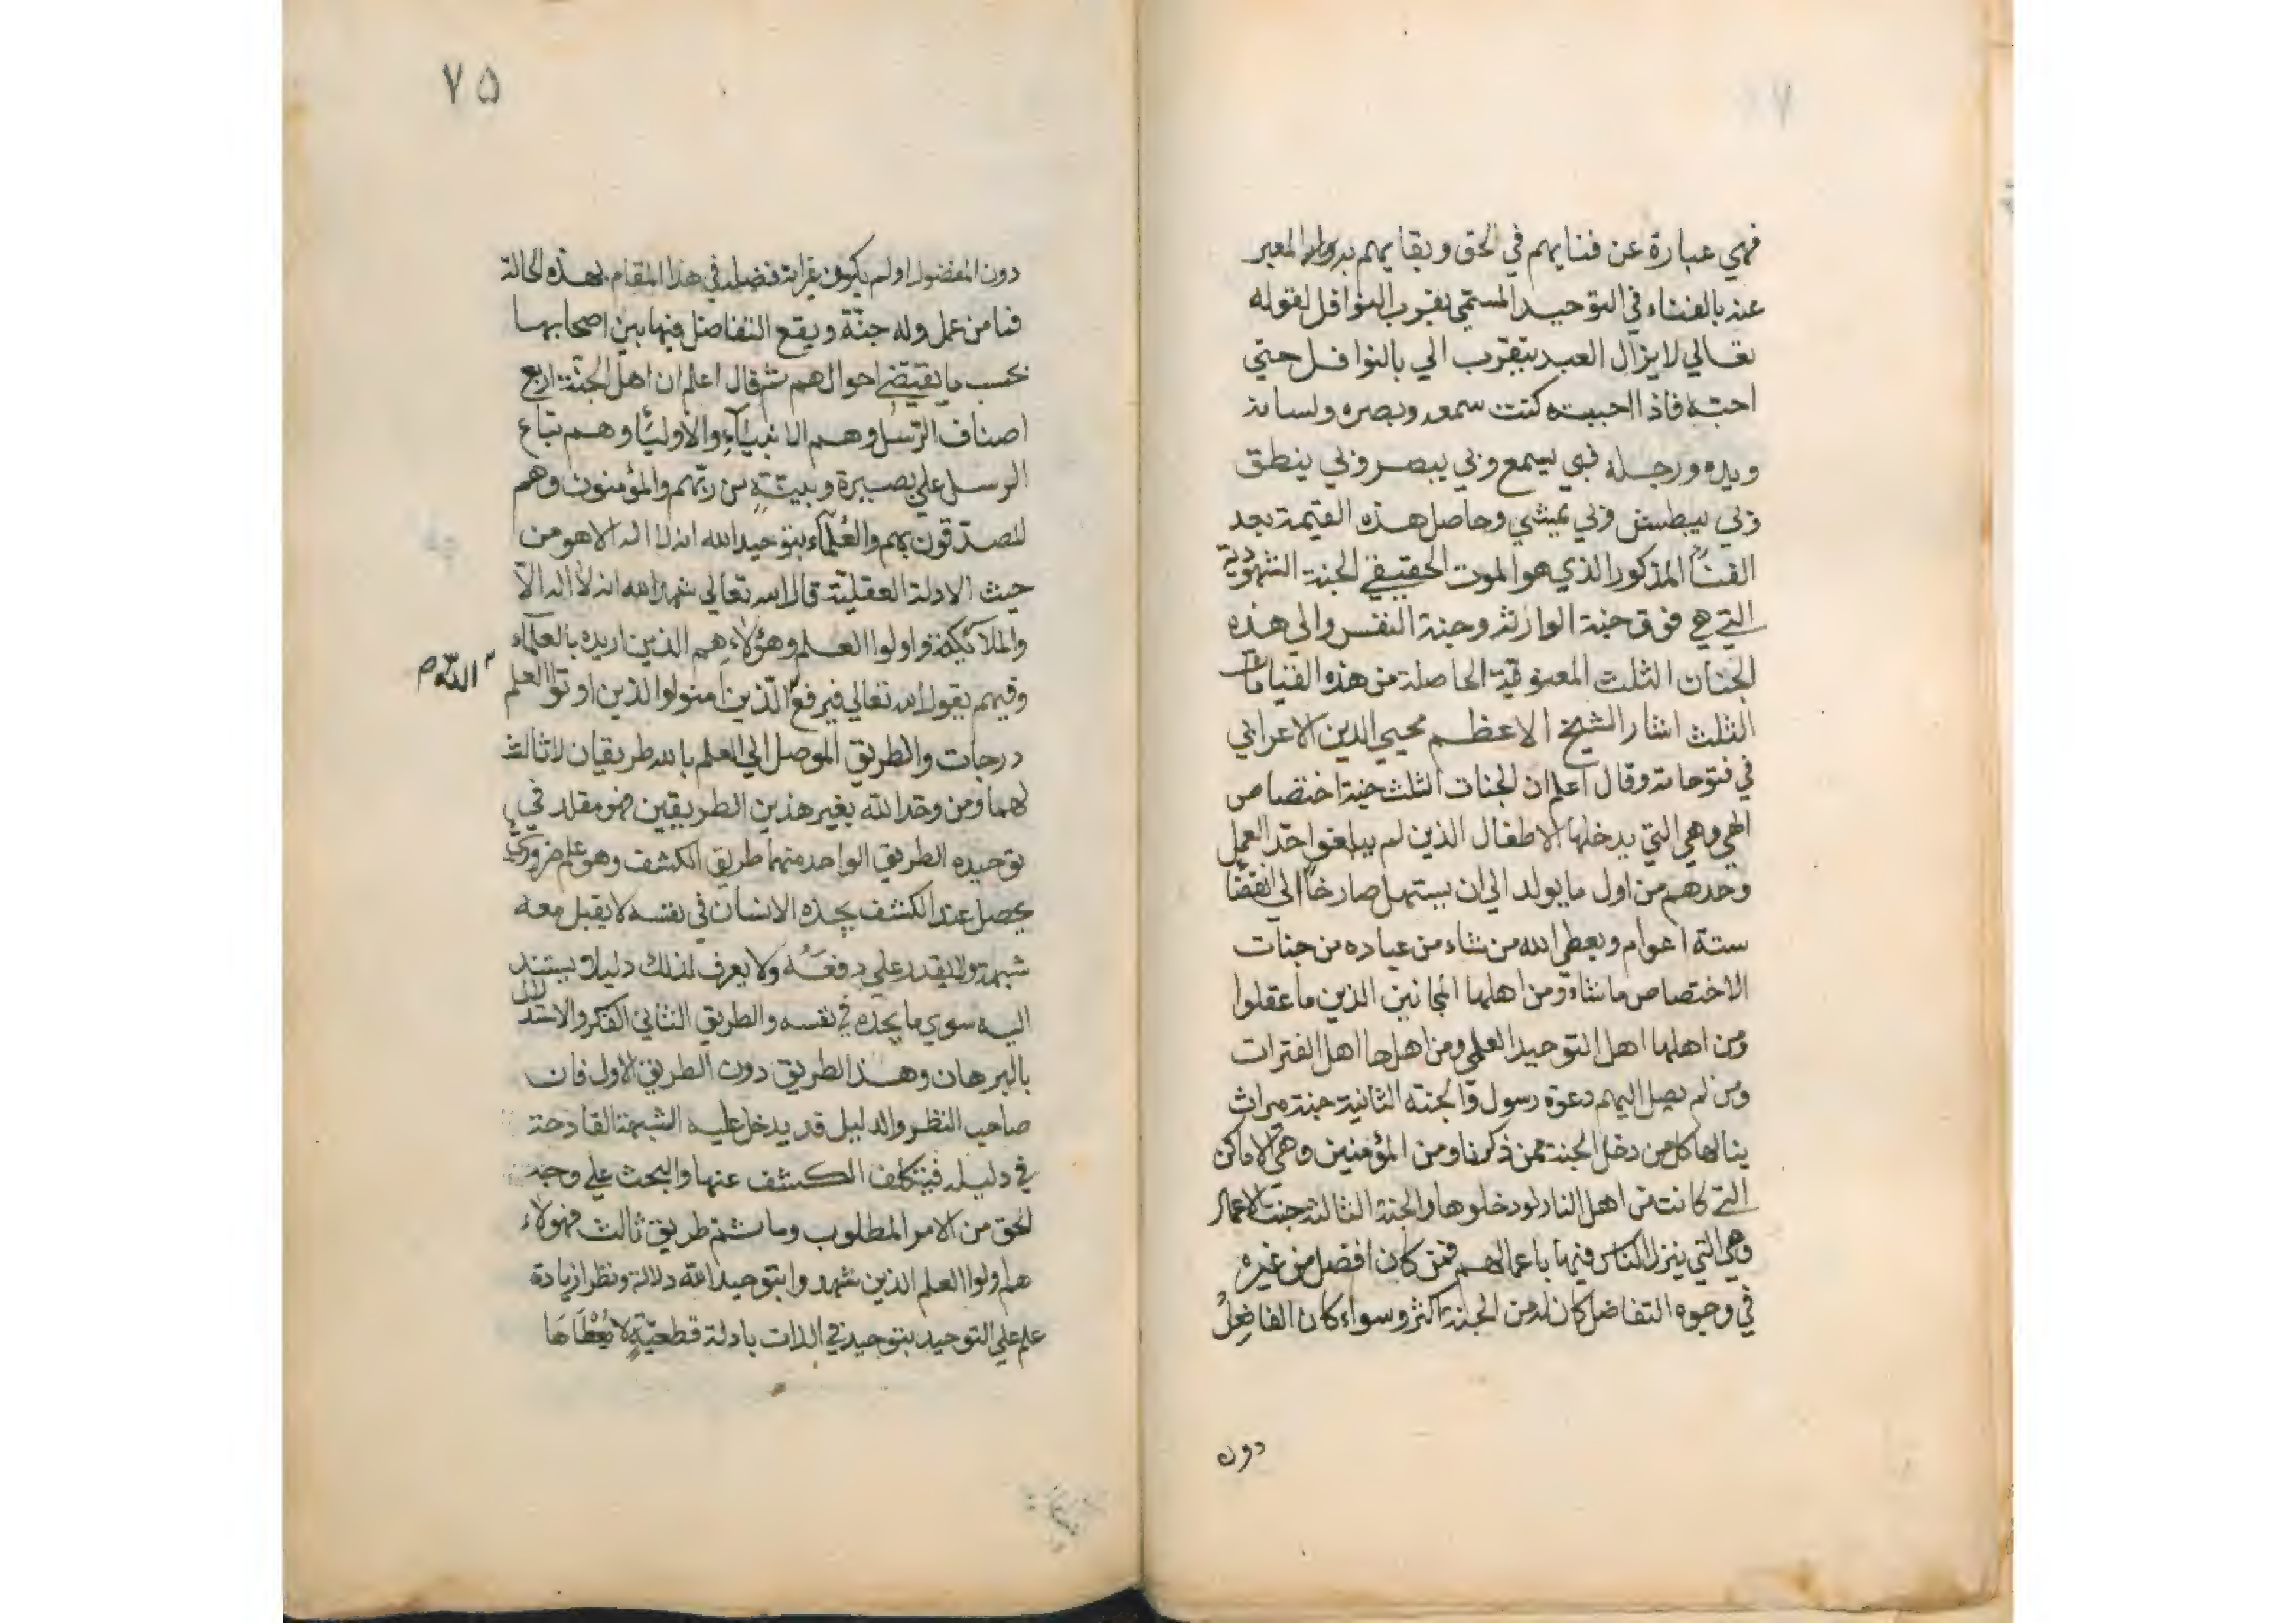 فهي عبارة عن فنايهم في الحق وبقايهم به المعبر
عنه بالفناء في التوحيد المسمى بقرب النوافل لقوله
تعالي لا يزال العبد يتقرب الي بالنوافل حتي
احبه فاذا احببته كنت سمعه وبصره ولسانه
ويده ورجله فبي يسمع وبي يبصر وبي ينطق
وبي يبطش وبي يمشي وحاصل هذه القيمة بعد
الفنآ المذكور الذي هو الموت الحقيقي الجنة الشهودية
التي هي فوق جنة الوارثة وجنة النفس والي هذه
الجنان الثلث المعنوية الحاصلة من هذه القيامات
الثلث اشار الشيخ الاعظم محيي الدين الاعرابي
في فتوحاته وقال اعلم ان الجنات الثلث جنة اختصاص
الهي وهي التي يدخلها الاطفال الذين لم يبلغوا حد العمل
وحدهم من اول ما يولد الي ان يستهل صارخا الي انقضآ
ستة اعوام ويعطي الله من شاء من عباده من جنات
الاختصاص ما شاء ومن اهلها المجانين الذين ما عقلوا
ومن اهلها اهل التوحيد العلمي ومن اهلها اهل الفترات
ومن لم يصل اليهم دعوة رسول والجنه الثانية جنة ميراث
ينالها كل من دخل الجنة ممن ذكرنا ومن المؤمنين وهي الاماكن
التي كانت من اهل النار لو دخلوها والجنة الثالثة جنت الاعمال
وهي التي ينزل الناس فيها باعمالهم فمن كان افضل من غيره
في وجوه التفاضل كان له من الجنة اكثر وسواء كان الفاضل
دون
٧٥
دون المفضول او لم يكون غيرانه فضله في هذا المقام بهذه الحالة
فما من عمل وله جنة ويقع التفاضل فيها بين اصحابها
بحسب ما يقتضي احوالهم ثم قال اعلم ان اهل الجنة اربع
اصناف الرسل وهم الانبيآء والاوليآ وهم تباع
الرسل علي بصيرة وبينة من ربهم والمؤمنون وهم
المصدقون بهم والعلمآء بتوحيد الله انه لا اله الا هو من
حيث الادلة العقلية قال الله تعالي شهد الله انه لا اله الا
والملائكة واولوا العلم وهؤلاء هم الذين اريده بالعلمآء
وفيهم يقول الله تعالي فيرفع الذين امنوا والذين اوتوا العلم
الله ص
درجات والطريق الموصل الي العلم بالله طريقان لا ثالث
لهما ومن وحد الله بغير هذين الطريقين فهو مقلد في
توحيده الطريق الواحد منهما طريق الكشف وهو علم ضروري
يحصل عند الكشف يجده الانسان في نفسه لا يقبل معه
شبهة ولا يقدر علي دفعه ولا يعرف لذلك دليلا يستند
اليه سوي ما يجده في نفسه والطريق الثاني الفكر والاستدلال
بالبرهان وهذا الطريق دون الطريق الاول فان
صاحب النظر والدليل قد يدخل عليه الشبهة القادحة
في دليله فيتكلف الكشف عنها والبحث علي وجه
الحق من الامر المطلوب وما ثم طريق ثالث فهولاء
هم اولوا العلم الذين شهدوا بتوحيد الله دلالة ونظرا زيادة
علم علي التوحيد بتوحيد في الذات بادلة قطعية لا يعطاها